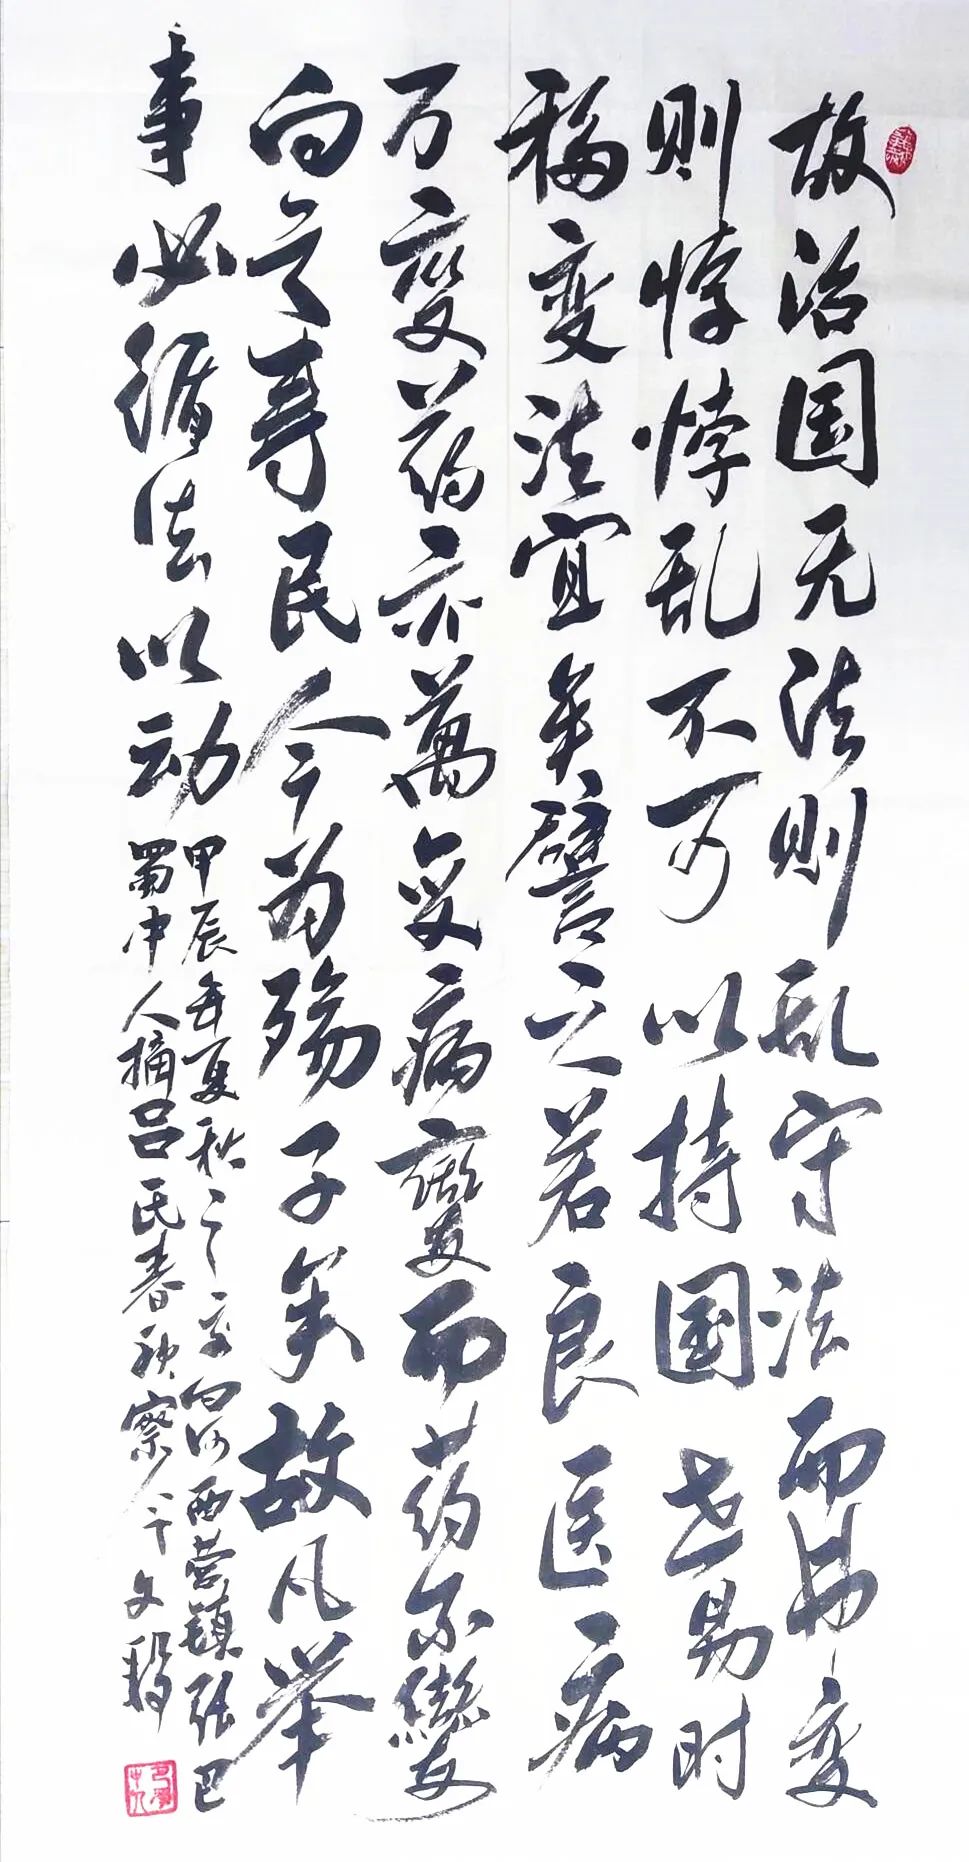 故治国无法则乱守法而弗变
则悖悖乱不可以持国世易时
移变法宜矣譬之若良医病
万变药亦萬变病變而药不變
向之寿民今为殇子矣故凡举
事必循法以动
甲辰年夏秋之交 西营镇张巴
蜀中人摘吕氏春秋察今文段